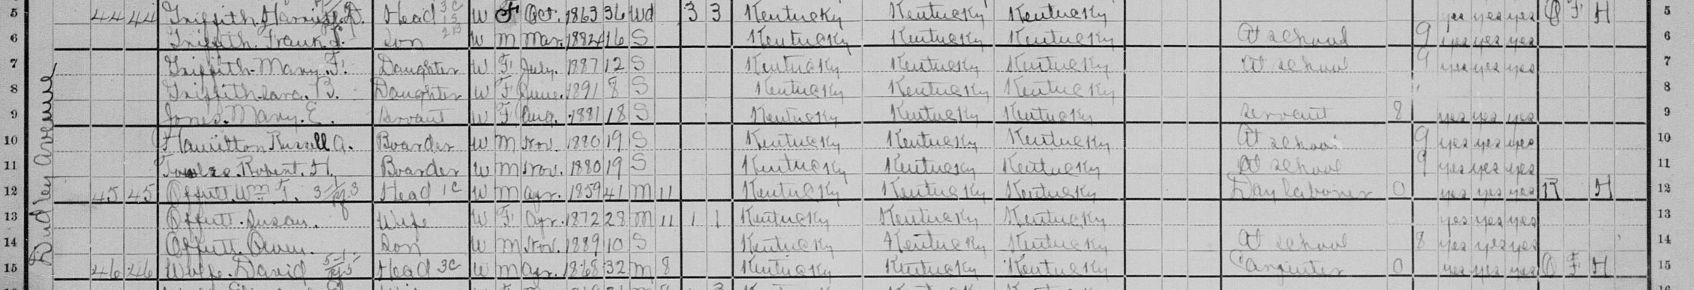 Dudley Avenue
5 44 44 Griffith Head W F Oct. 1863 36 Wd 3 3 Kentucky Kentucky Kentucky yes yes yes O F H 5
6 Griffith Frank Son W M Mar. 16 S Kentucky Kentucky Kentucky At school 9 yes yes yes 6
7 Griffith Mary F. Daughter W F July. 1887 12 S Kentucky Kentucky Kentucky At school 9 yes yes yes 7
8 Griffith B. Daughter W F June. 1891 8 S Kentucky Kentucky Kentucky 8
9 Jones Mary. E. Servant W F Aug. 1881 18 S Kentucky Kentucky Kentucky Servant 8 yes yes yes 9
10 Hamilton Russell A. Boarder W M Nov. 1880 19 S Kentucky Kentucky Kentucky At school 9 yes yes yes 10
11 Robert. H. Boarder W M Nov. 1880 19 S Kentucky Kentucky Kentucky At school 9 yes yes yes 11
12 45 45 Offutt Wm T. Head W M Apr. 1859 41 M 11 Kentucky Kentucky Kentucky Day laborer 0 yes yes yes R H 12
13 Offutt. Susan. Wife W F Apr. 1872 28 M 11 1 1 Kentucky Kentucky Kentucky yes yes yes 13
14 Offutt Owen. Son W M Nov. 1889 10 S Kentucky Kentucky Kentucky At school 8 yes yes yes 14
15 46 46 David Head W M Apr. 1868 32 M 8 Kentucky Kentucky Kentucky Carpenter 0 yes yes yes O F H 15